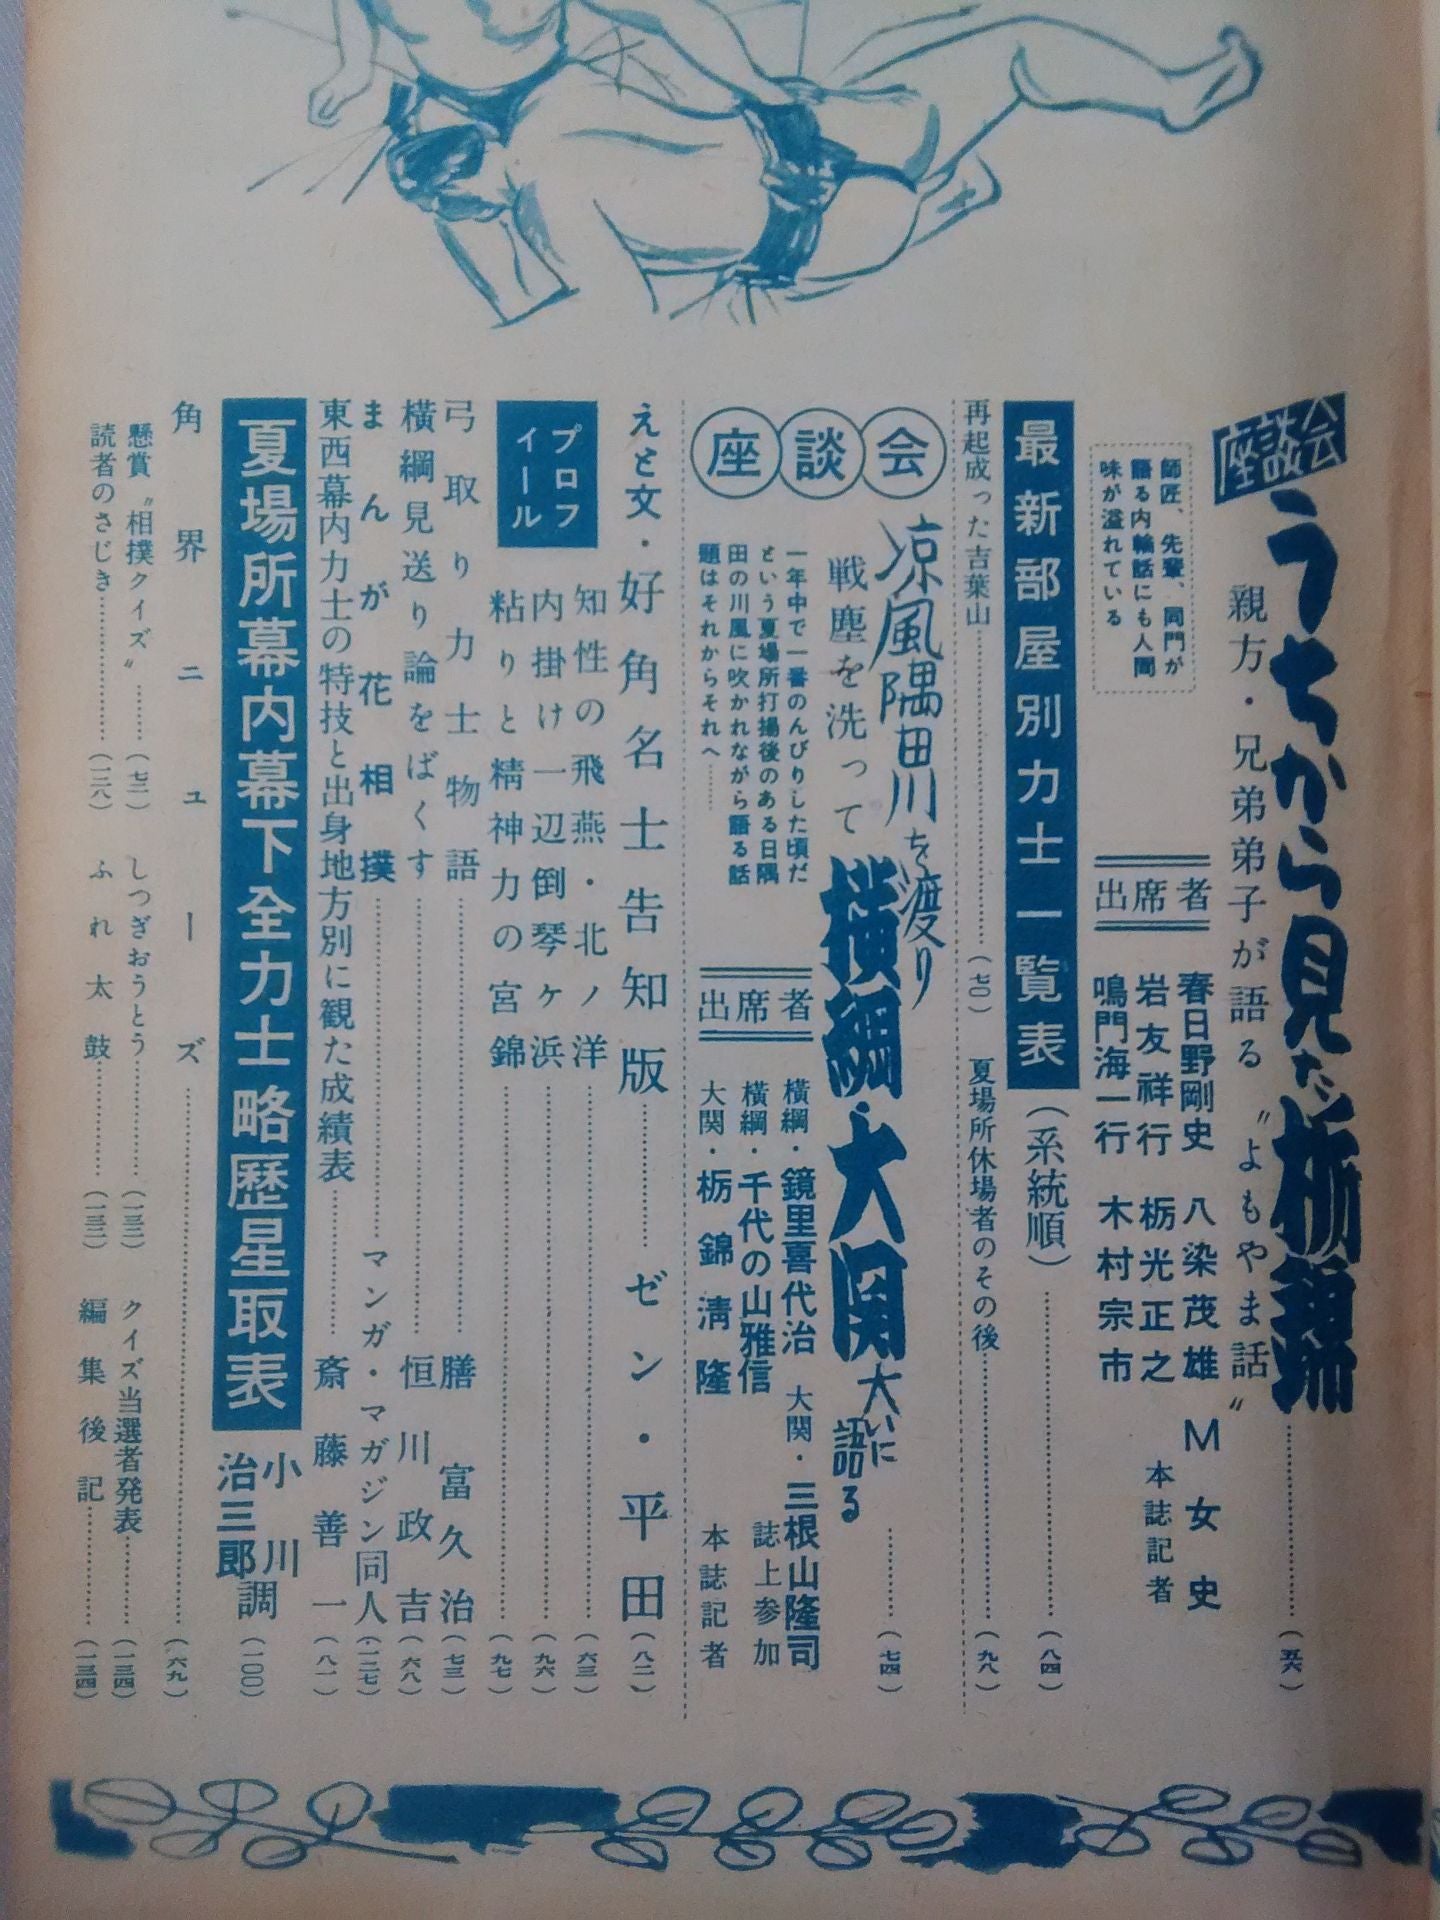 座談会 うちから見た栃錦……………(五六)
親方・兄弟弟子が語る〝よもやま話〟
師匠、先輩、同門が
語る内輪話にも人間
味が溢れている
出席者
春日野剛史 八染茂雄 M女史
岩友祥行 栃光正之 本誌記者
鳴門海一行 木村宗市
最新部屋別力士一覧表(系統順)……………(八四)
再起成った吉葉山……………(七〇) 夏場所休場者のその後……………(九八)
座談会
涼風隅田川を渡り
戦塵を洗って 横綱・大関大いに語る……………(七四)
一年中で一番のんびりした頃だ
という夏場所打揚後のある日隅
田の川風に吹かれながら語る話
題はそれからそれへ……
出席者
横綱・鏡里喜代治 大関・三根山隆司
横綱・千代の山雅信 誌上参加
大関・栃錦清隆 本誌記者
えと文・好角名士告知版……………ゼン・平田(八二)
プロフイール
知性の飛燕・北ノ洋……………(六三)
内掛け一辺倒琴ヶ浜……………(九六)
粘りと精神力の宮錦……………(九七)
弓取り力士物語……………膳富久治(七三)
横綱見送り論をばくす……………恒川政吉(六八)
まんが花相撲……………マンガ・マガジン同人(一二七)
東西幕内力士の特技と出身地方別に観た成績表……………斎藤善一(八一)
夏場所幕内幕下全力士略歴星取表 小川治三郎調(一〇〇)
角界ニュース……………(六九)
懸賞〝相撲クイズ〟………(七二) しつぎおうとう……………(一三二) クイズ当選者発表……………(一三四)
読者のさじき……………(一二八) ふれ太鼓……………(一三二) 編集後記……………(一三四)